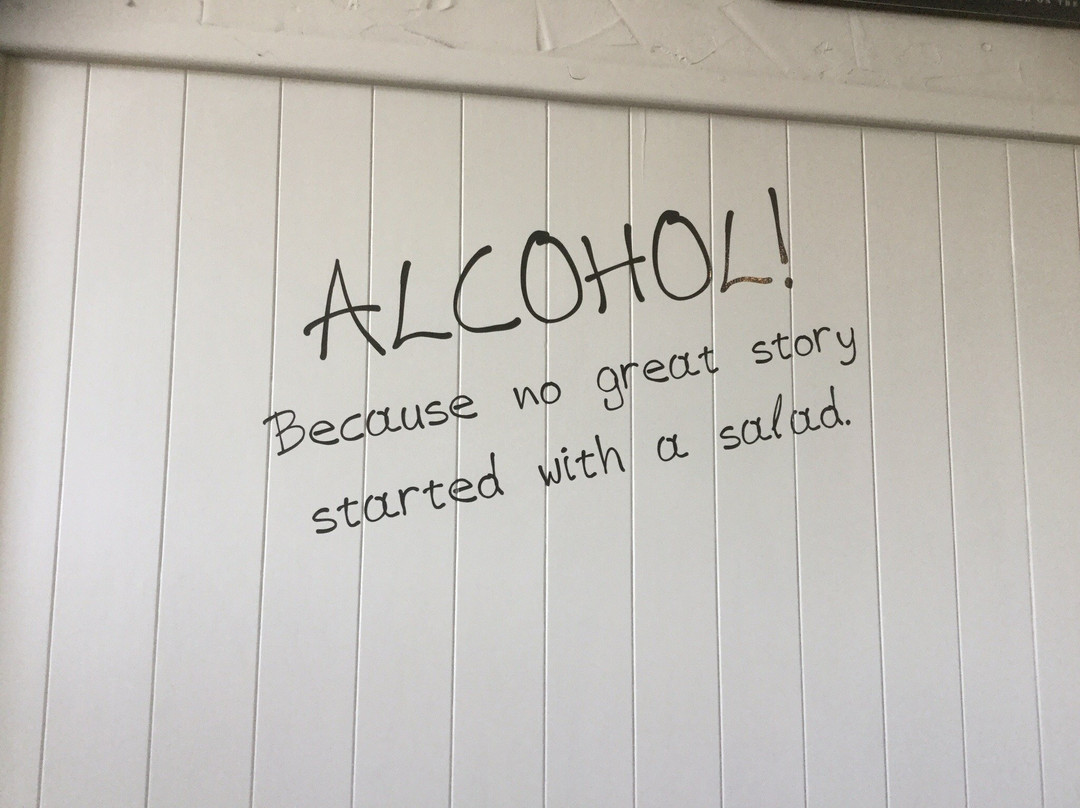 ALCOHOL!
Because no great story
started with a salad.